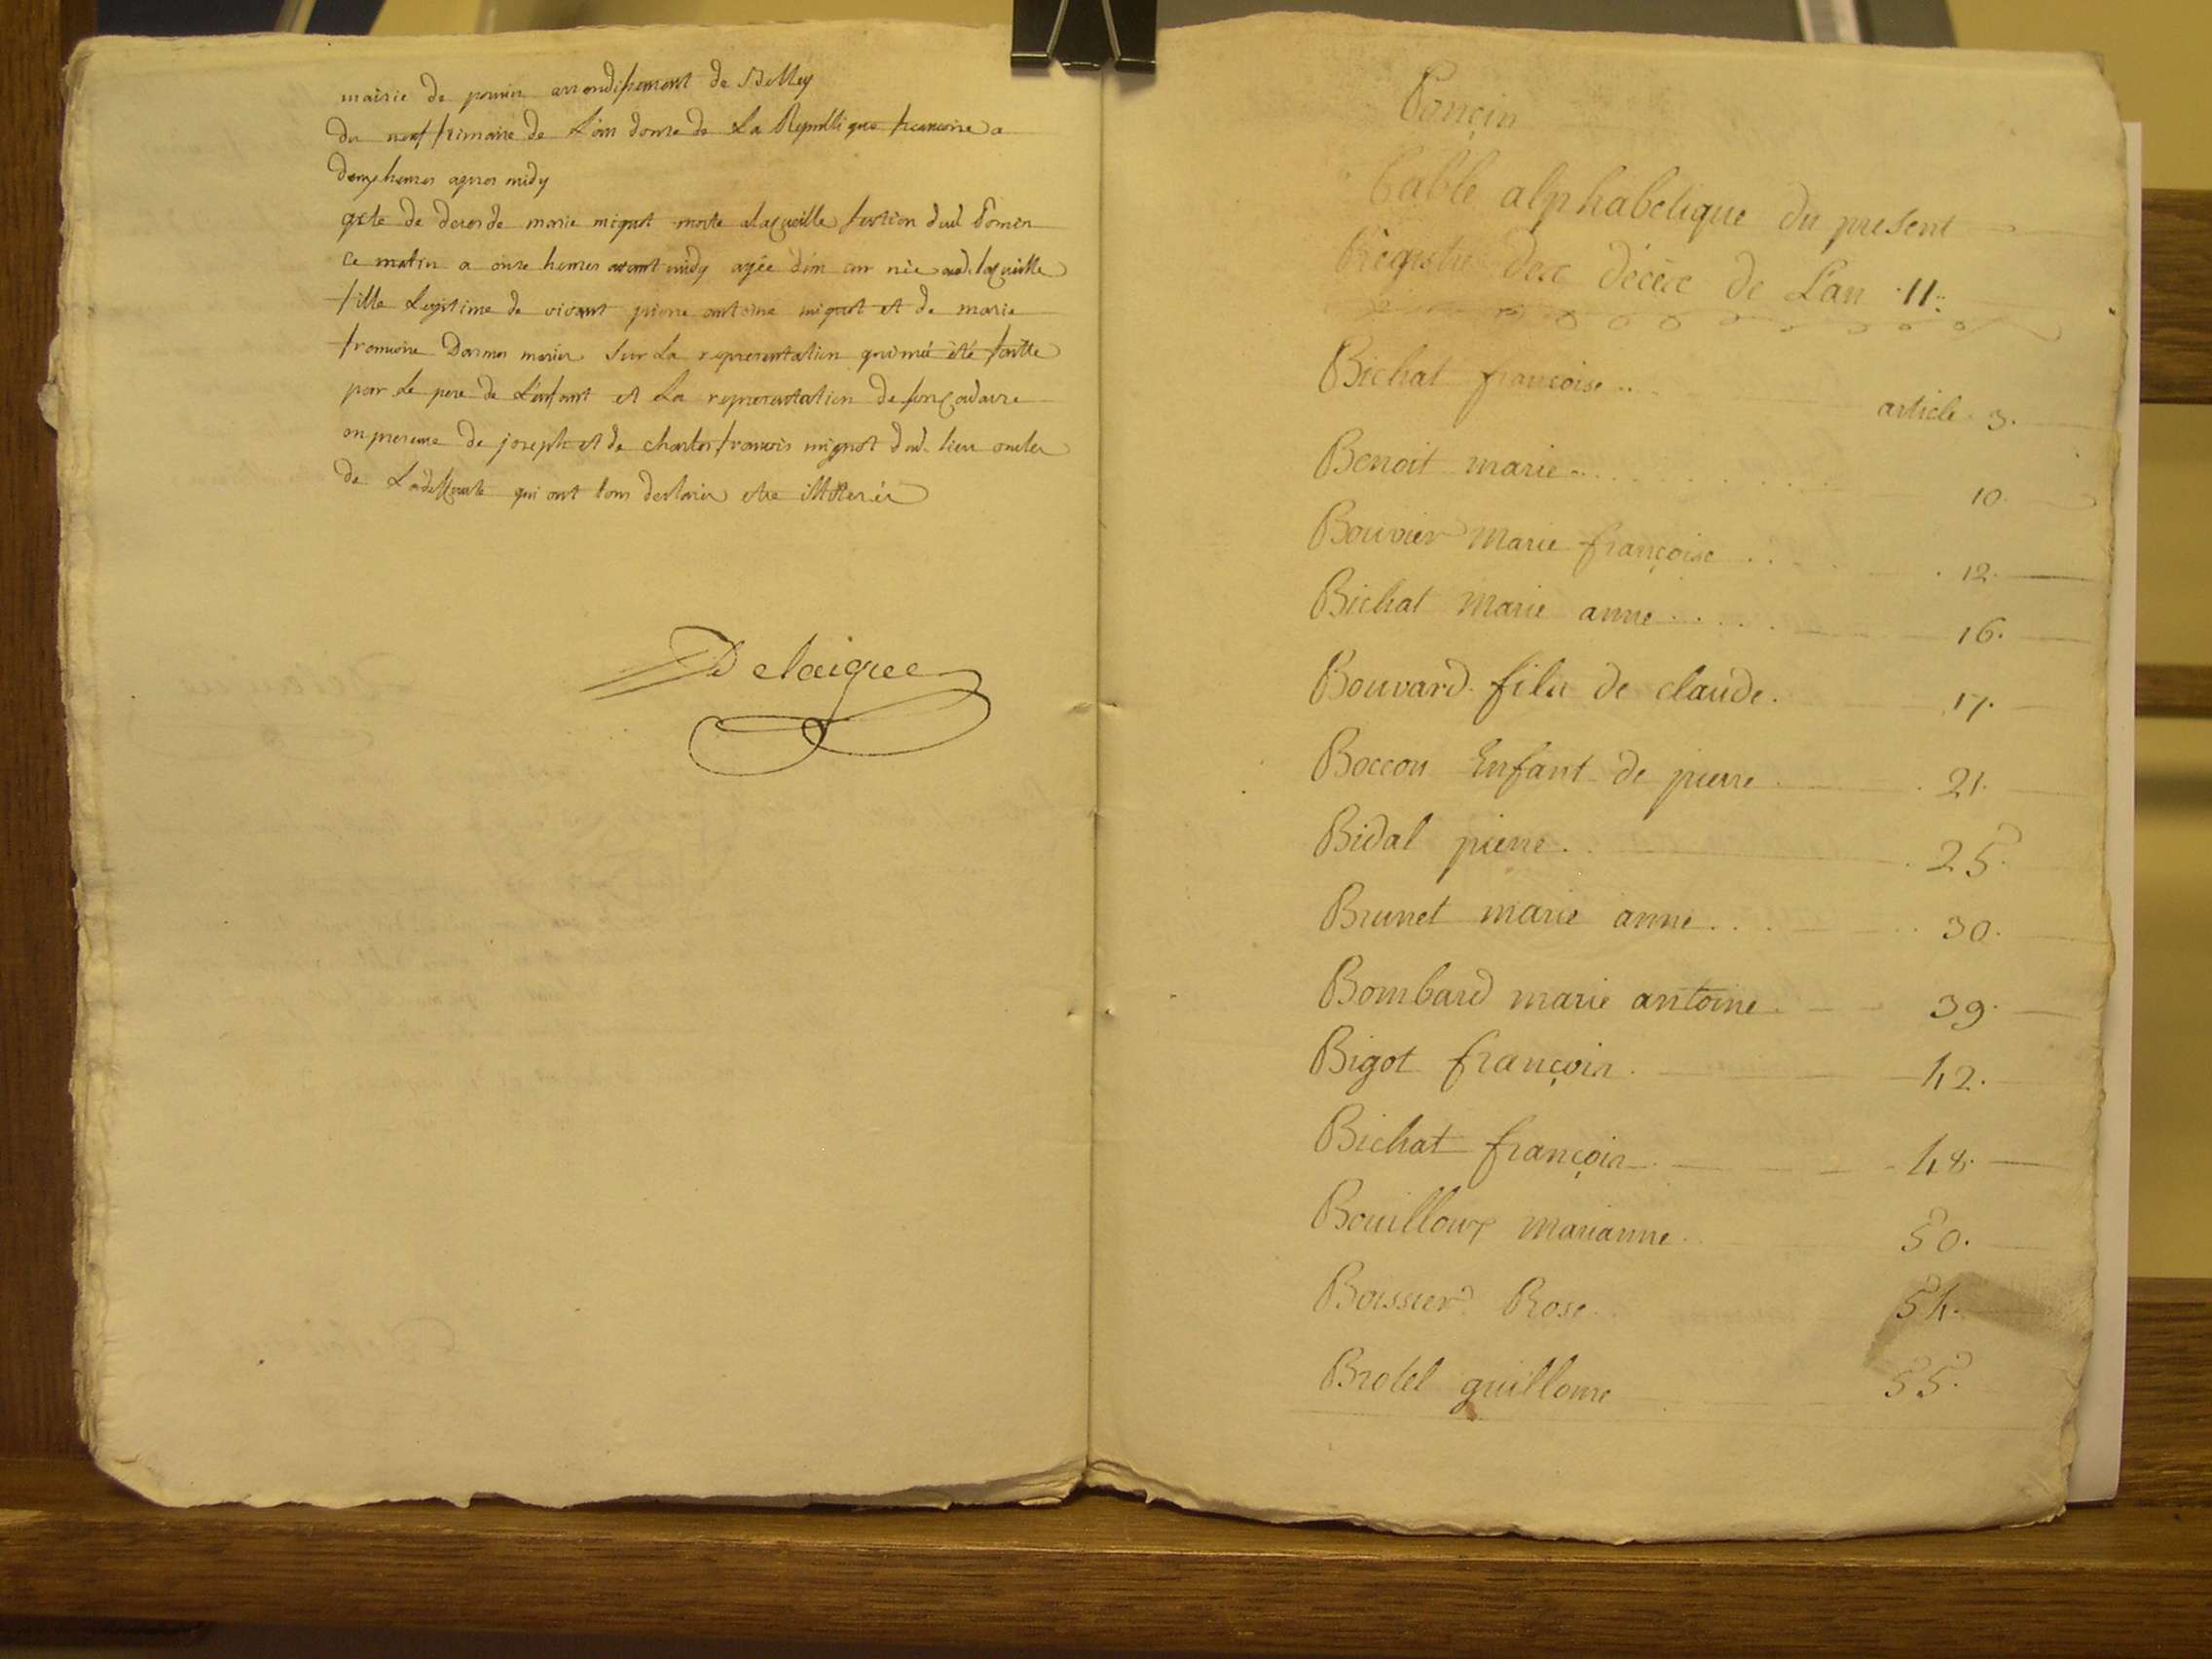 mairie de poncin arrondissement de Belley
du neuf frimaire de L'an douze de La Republique francoise a
deux heures apres midy
acte de deces de marie mignot morte alacueille section dud Poncin
ce matin a onze heures avant midy agée d'un an née aud. lacueille
fille Legitime de vivant pierre antoine mignot et de marie
francoise mariés Sur La representation qui m'a été faitte
par Le pere de L'enfant et La representation de son cadavre
en presence de joseph et de charles francois mignot dud. lieu oncles
de Ladeffunte qui ont tous declarés etre illiterés
Delaigue
Poncin
Table alphabetique du present
Registre des décès de Lan 11.
Bichat françoise .. article 3.
Benoit marie 10.
Bouvier Marie françoise 12.
Bichat Marie anne 16.
Bouvard fils de claude. 17.
Boccon Enfant de pierre 21.
Bidal pierre 25.
Brunet marie anne 30.
Bombard marie antoine 39.
Bigot françois 42.
Bichat françois 48.
Bouilloux marianne 50.
Boissier Rose 54.
Brotel guillome 55.